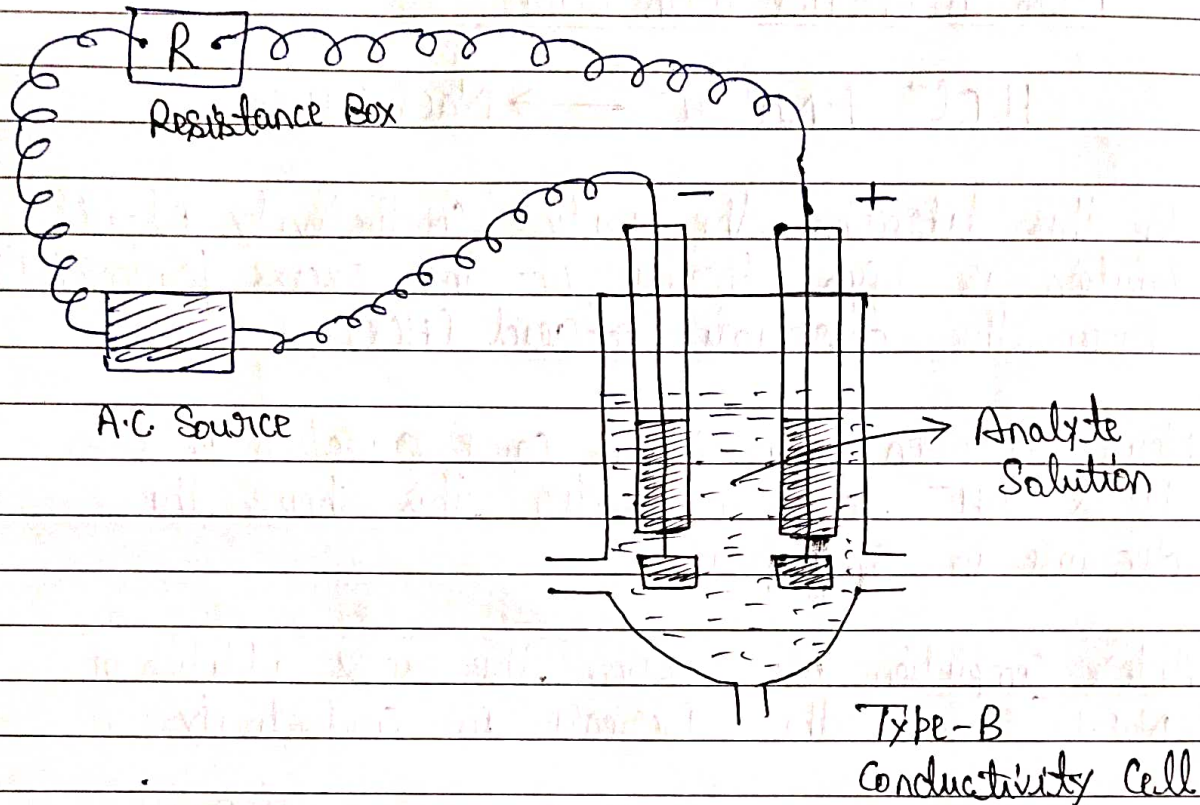 R
Resistance Box
− +
A.C. Source
Analyte
Solution
Type-B
Conductivity Cell